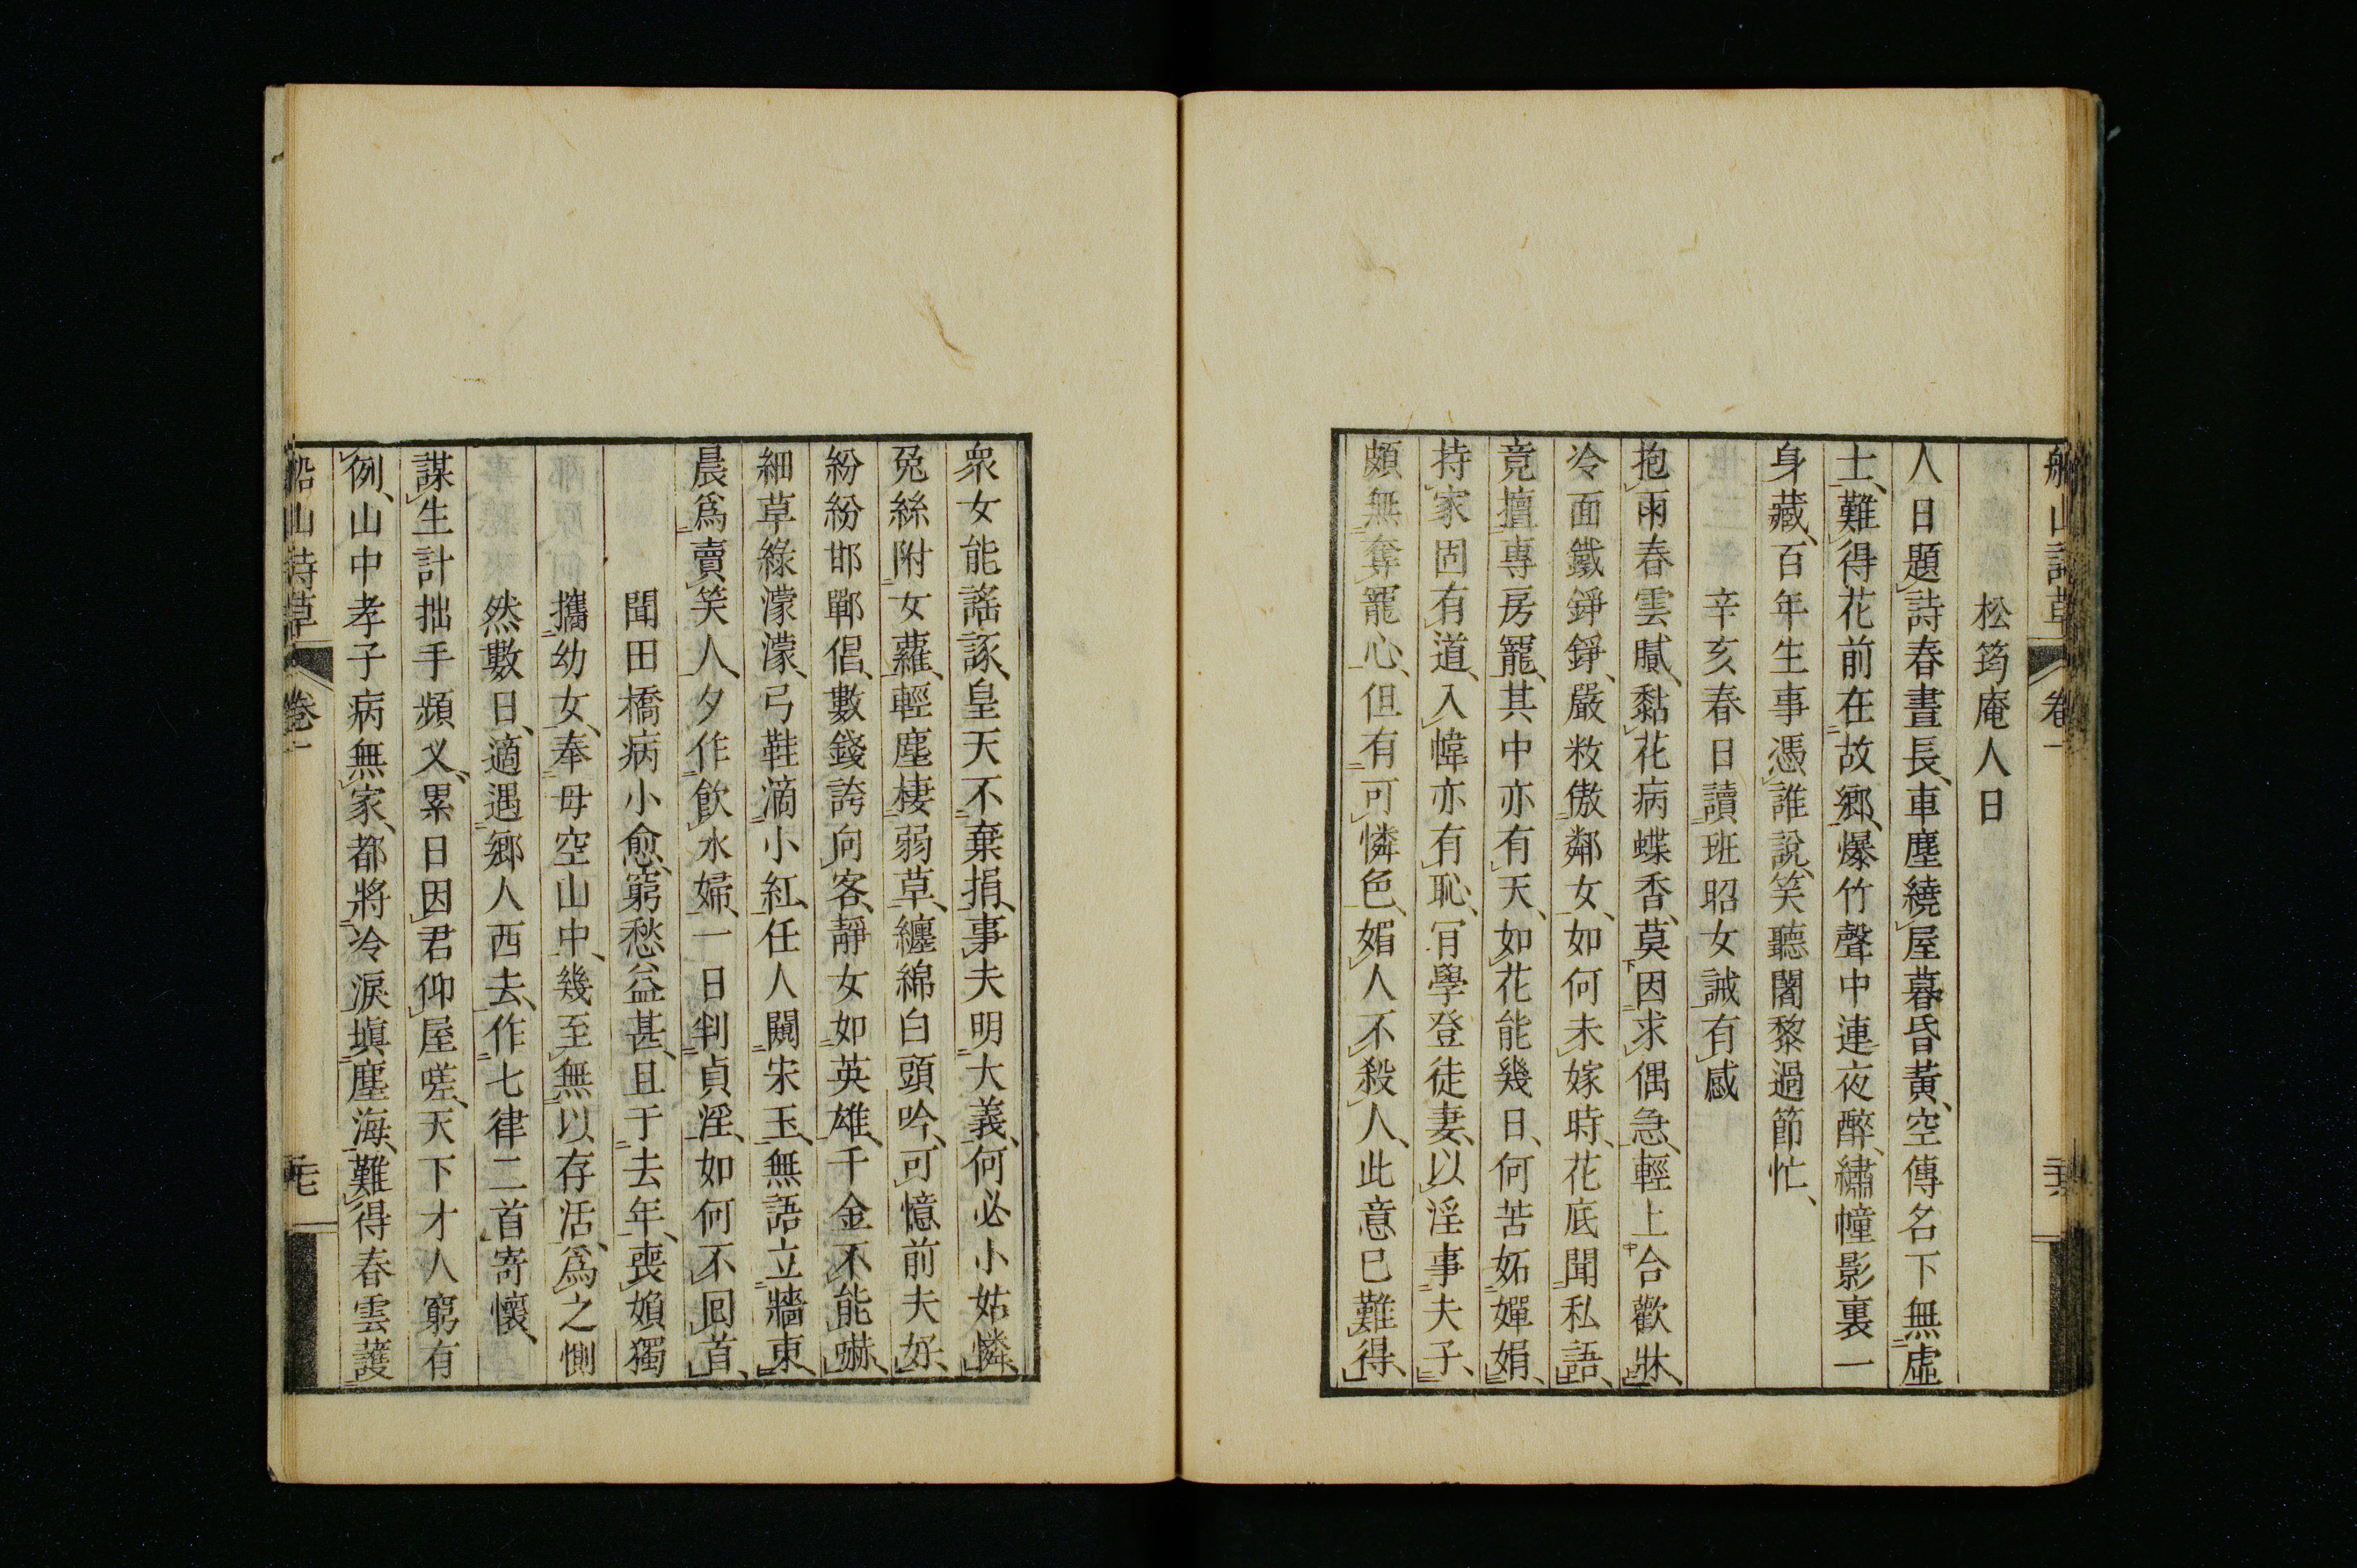 船山詩草 卷一 二十六
松筠庵人日
人日題詩春晝長、車塵繞屋暮昏黃、空傳名下無虛
士、難得花前在故鄉、爆竹聲中連夜醉、繡幢影裏一
身藏、百年生事憑誰說、笑聽闍黎過節忙、
辛亥春日讀班昭女誡有感
抱雨春雲膩、黏花病蝶香、莫因求偶急、輕上合歡牀、
冷面鐵錚錚、嚴粧傲鄰女、如何未嫁時、花底聞私語、
竟擅專房寵、其中亦有天、如花能幾日、何苦妬嬋娟、
持家固有道、入幃亦有恥、肎學登徒妻、以淫事夫子、
頗無奪寵心、但有可憐色、媚人不殺人、此意已難得、
衆女能謠諑、皇天不棄捐、事夫明大義、何必小姑憐、
兔絲附女蘿、輕塵棲弱草、纏綿白頭吟、可憶前夫好、
紛紛邯鄲倡、數錢誇向客、靜女如英雄、千金不能嚇、
細草綠濛濛、弓鞋滴小紅、任人闚宋玉、無語立牆東、
晨爲賣笑人、夕作飲水婦、一日判貞淫、如何不囘首、
聞田橋病小愈、窮愁益甚、且于去年、喪媍獨
攜幼女、奉母空山中、幾至無以存活、爲之惻
然數日、適遇鄉人西去、作七律二首寄懷、
謀生計拙手頻叉、累日因君仰屋嗟、天下才人窮有
例、山中孝子病無家、都將冷淚塡塵海、難得春雲護
船山詩草 卷一 二十七